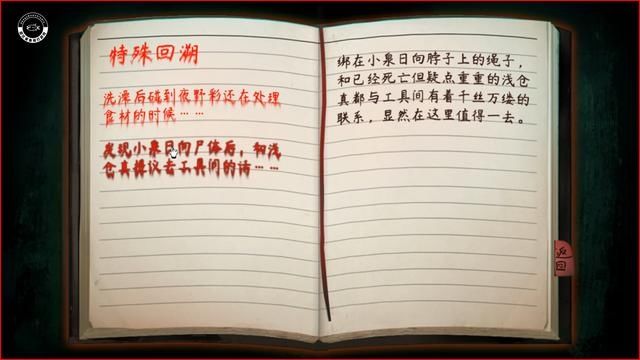 特殊回溯
洗澡后碰到夜野彩还在处理
食材的时候……
发现小泉日向尸体后，和浅
仓真提议去工具间的话……
绑在小泉日向脖子上的绳子，
和已经死亡但疑点重重的浅仓
真都与工具间有着千丝万缕的
联系，显然在这里值得一去。
返回